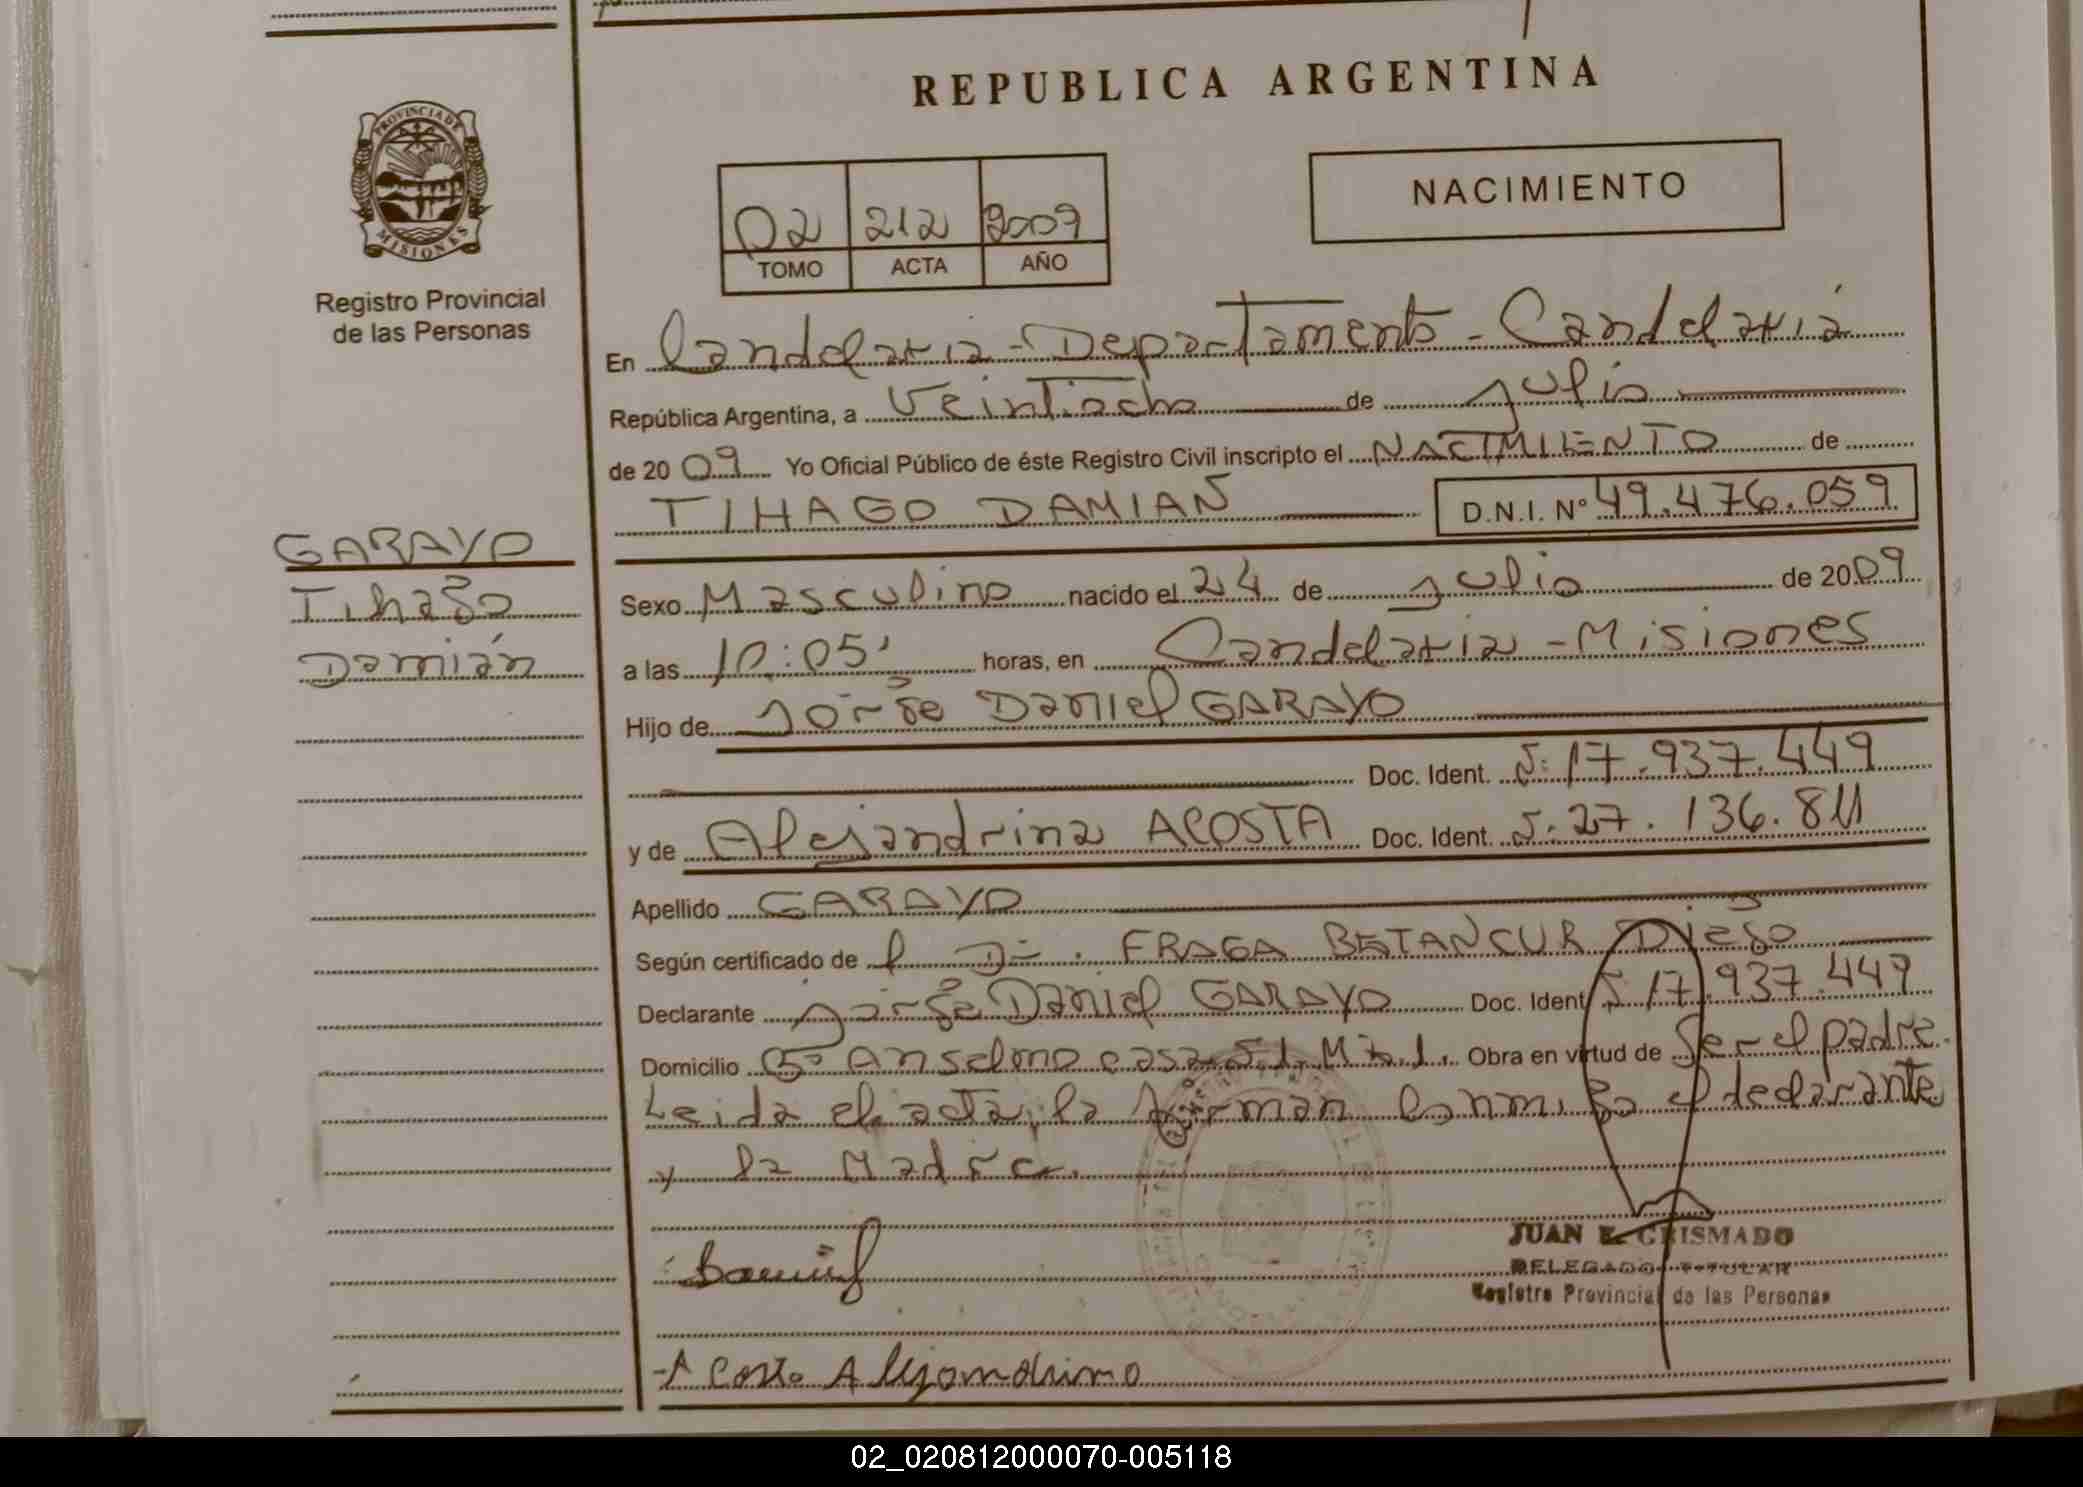 REPUBLICA ARGENTINA
PROVINCIA DE
MISIONES
Registro Provincial
de las Personas
02 212 2009
TOMO ACTA AÑO
NACIMIENTO
En Candelaria - Departamento - Candelaria
República Argentina, a Veintiocho de julio
de 2009 Yo Oficial Público de éste Registro Civil inscripto el NACIMIENTO de
TIHAGO DAMIAN D.N.I. Nº 49.476.059
GARAYO
Tihago
Damián
Sexo Masculino nacido el 24 de julio de 2009
a las 10:05' horas, en Candelaria - Misiones
Hijo de Jorge Daniel GARAYO
Doc. Ident. 17.937.449
y de Alejandrina ACOSTA Doc. Ident. 27.136.811
Apellido GARAYO
Según certificado de FRAGA BETANCUR Diego
Declarante Jorge Daniel GARAYO Doc. Ident 17.937.449
Domicilio Bº Anselmo casa 51. Mz 1. Obra en virtud de Ser el padre.
Leida el acta, la firman conmigo el declarante
y la Madre.
Daniel
JUAN E. CRISMADO
DELEGADO TITULAR
Registro Provincial de las Personas
Acosta Alejandrina
02_020812000070-005118